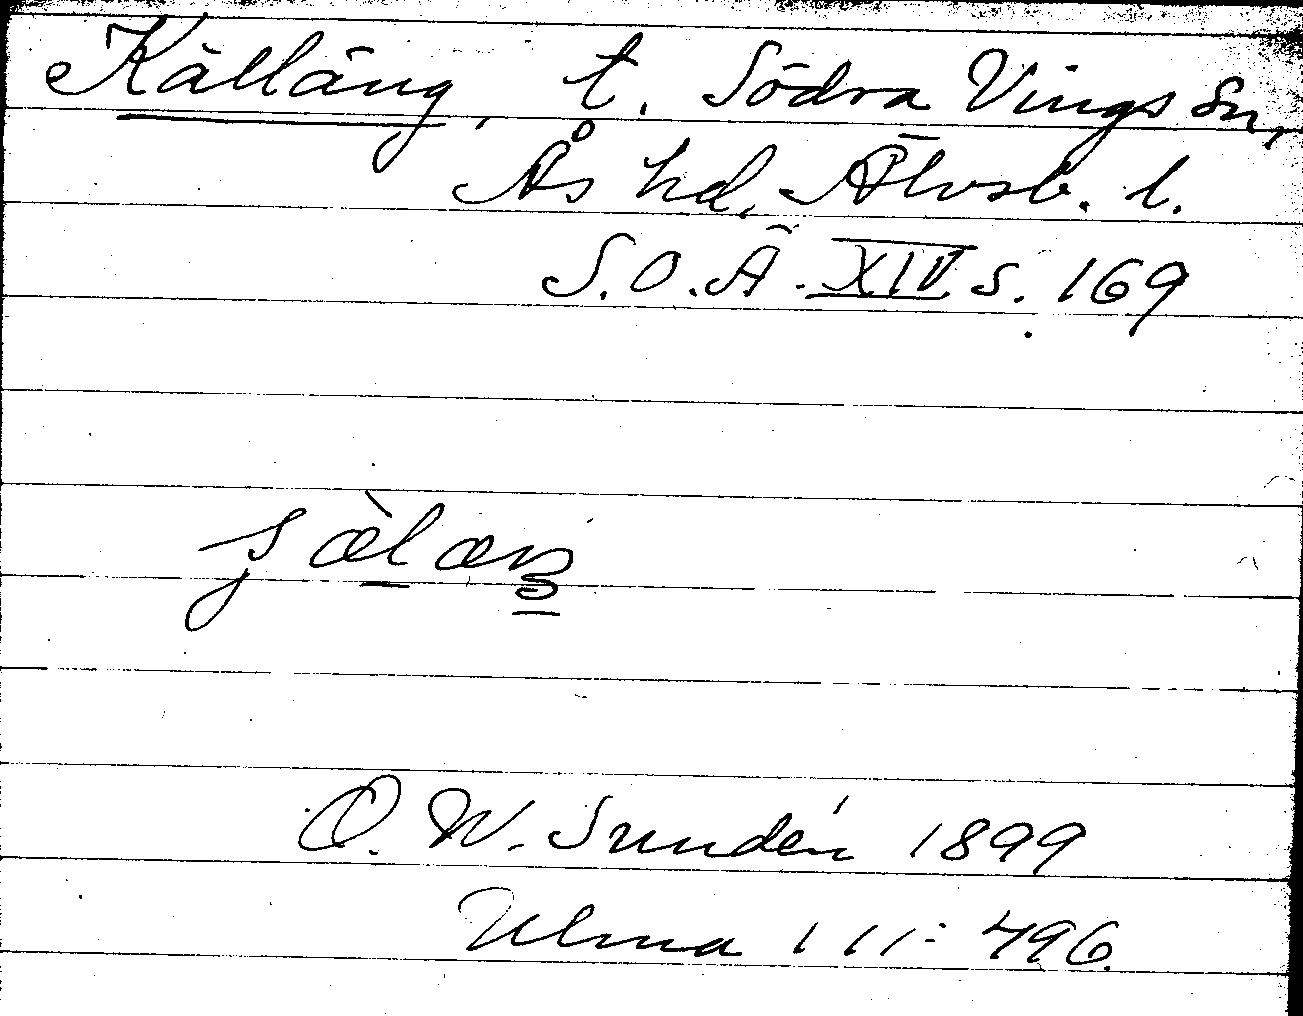 Källäng, t. Södra Vings sn,
Ås hd, Älvsb. l.
S.O.Ä. XIV s. 169
O. W. Sundén 1899
Ulma 111: 496.